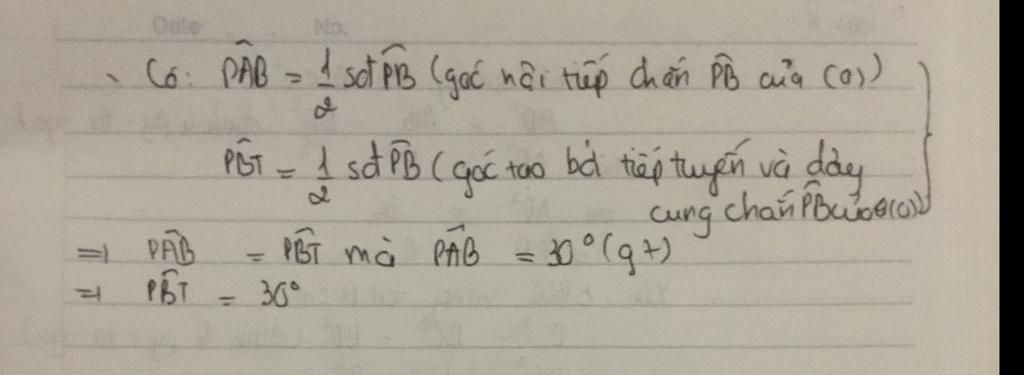 Date No.
Có: PÂB = 1/2 sđ PB̂ (góc nội tiếp chắn PB̂ của (O))
PB̂T = 1/2 sđ PB̂ (góc tạo bởi tiếp tuyến và dây
cung chắn PB̂ của (O))
=> PÂB = PB̂T mà PÂB = 30° (gt)
=> PB̂T = 30°